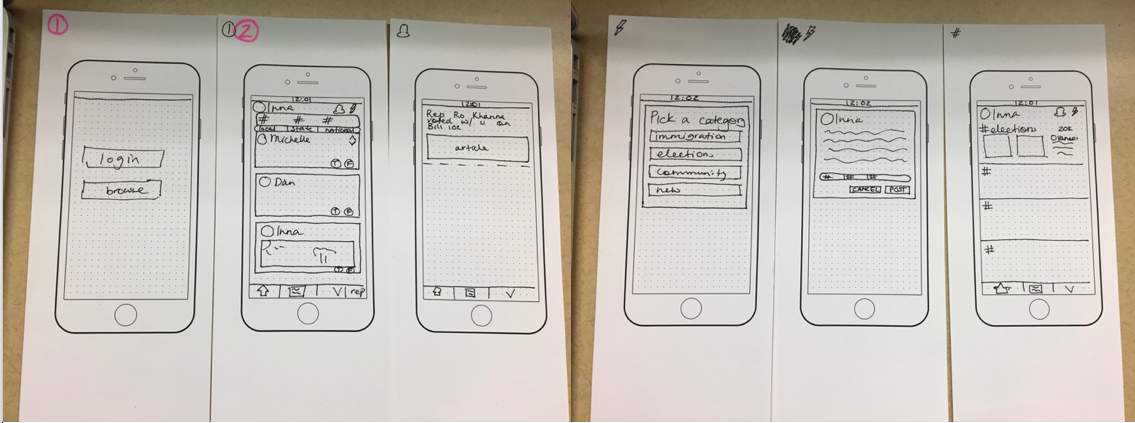 1
login
browse
1 2
12:01
Inna
# # #
local state national
Michelle
T F
Dan
T F
Inna
T F
V rep
12:01
Rep Ro Khanna
voted w/ u on
Bill 102
article
V
12:02
Pick a category
immigration
election
community
new
12:02
Inna
# # #
CANCEL POST
#
12:01
Inna
#elections 20k
#
#
#
V